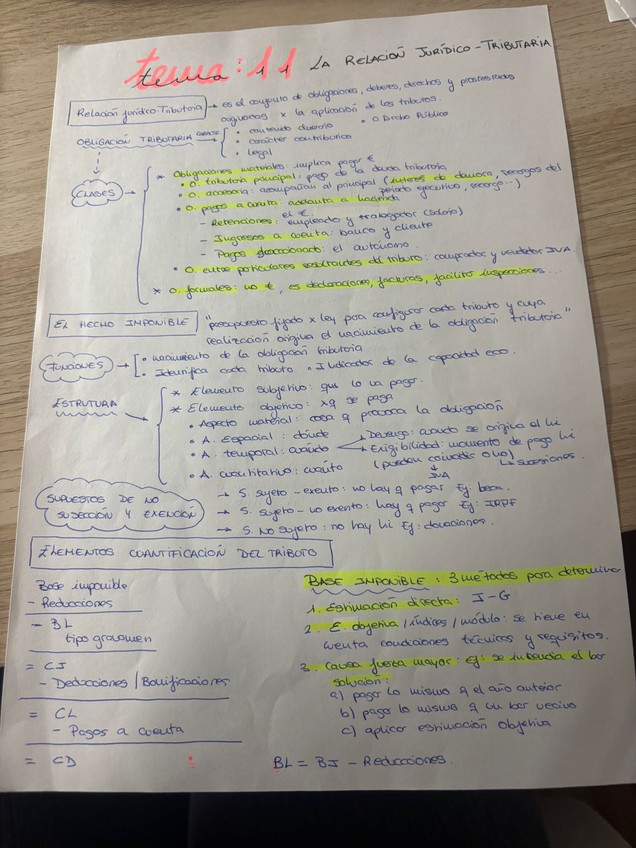 tema: 11 LA RELACIÓN JURÍDICO-TRIBUTARIA
Relación jurídico-Tributaria → es el conjunto de obligaciones, deberes, derechos y potestades
originarias x la aplicación de los tributos.
OBLIGACIÓN TRIBUTARIA
• contenido dinerario • O. Dcho Público
• carácter contributivo
• legal
CLASES
* Obligaciones materiales: implica pagar €
• O. tributaria principal: pago de la deuda tributaria
• O. accesoria: acompañan al principal (interés de demora, recargos del
periodo ejecutivo, recargo...)
• O. pagos a cuenta: adelanta a hacienda
el €.
- Retenciones: empleado y trabajador (salario)
- Ingresos a cuenta: banco y cliente
- Pagos fraccionado: el autónomo.
• O. entre particulares resultantes del tributo: comprador y vendedor IVA
* O. formales: no €, es declaraciones, facturas, facilitar inspecciones...
EL HECHO IMPONIBLE "presupuesto fijado x ley para configurar cada tributo y cuya
realización origina el nacimiento de la obligación tributaria"
FUNCIONES → • nacimiento de la obligación tributaria
• Identifica cada tributo • Indicador de la capacidad eco.
ESTRUTURA
* Elemento subjetivo: que lo va pagar.
* Elemento objetivo: xq se paga
• Aspecto material: cosa q provoca la obligación
• A. Espacial: dónde
• A. temporal: cuándo
Devengo: cuando se origina el hi
Exigibilidad: momento de pago hi
(pueden coincidir o no) ↳ sucesiones.
↓
IVA
• A. cuantitativo: cuánto
SUPUESTOS DE NO
SUJECIÓN Y EXENCIÓN
→ S. sujeto - exento: no hay q pagar Ej: beca.
→ S. sujeto - no exento: hay q pagar Ej: IRPF
→ S. No sujeto: no hay hi Ej: donaciones.
ELEMENTOS CUANTIFICACIÓN DEL TRIBUTO
Base imponible
- Reducciones
- BL
tipo gravamen
= CI
- Deducciones / Bonificaciones
= CL
- Pagos a cuenta
= CD
BASE IMPONIBLE: 3 métodos para determinar
1. Estimación directa: I - G
2. E. objetiva / índices / módulo: se tiene en
cuenta condiciones técnicas y requisitos.
3. Causa fuerza mayor: Ej: se incendia el bar
solución:
a) pagar lo mismo q el año anterior
b) pagar lo mismo q un bar vecino
c) aplicar estimación objetiva
BL = BI - Reducciones.